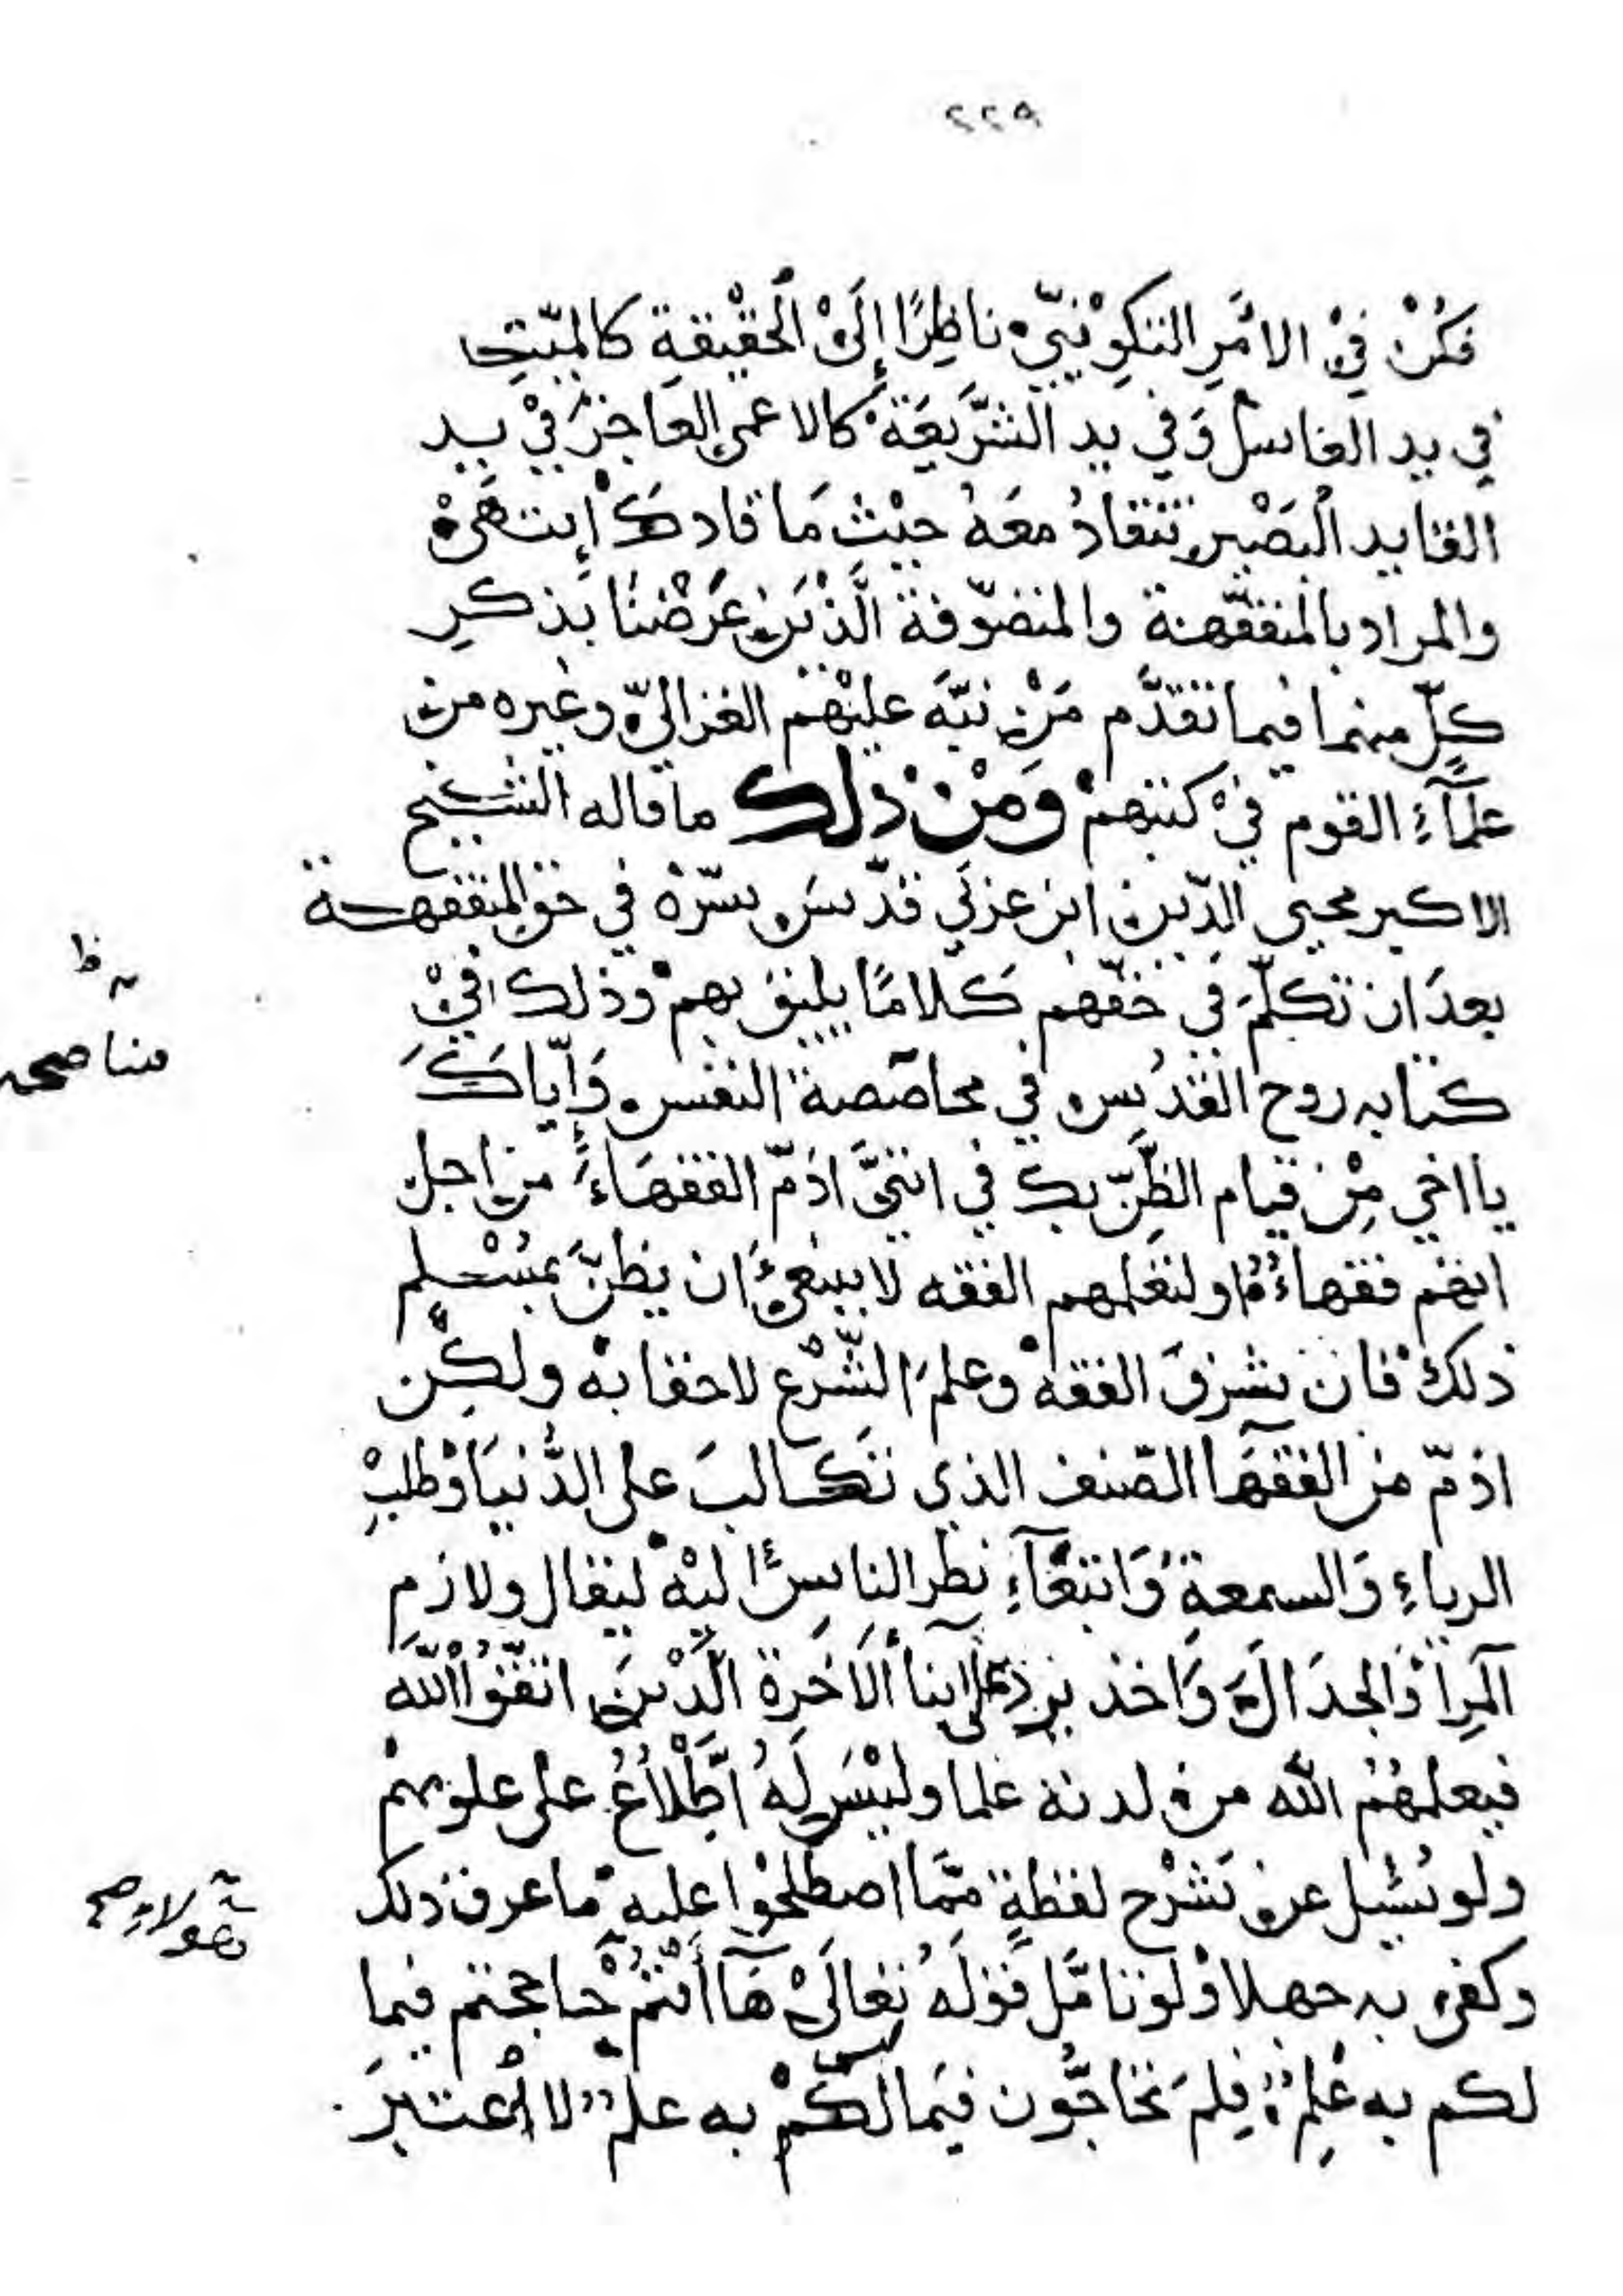 ٢٢٩
فَكُنْ فِيْ الامَرِ التكوِيْنِيّ ناظِرًا إِلَىْ الْحَقْيِقةِ كَالميّتِ
في يد الغاسل وَفي يد الشَّريعَة كالاعمى العاجز فيْ يد
القايد الْبَصْير تنقادُ معَهُ حيْثُ مَا قادكَ إنتهَىْ
والمراد بالمتفقّهة والمتصَوّفة الَّذْينَ عَرَضْنَا بذكرِ
كلٍّ منهما فيما تقدَّم مَنْ نبَّهَ عليْهم الغزاليّ وغيره من
علمآءِ القوم فيْ كتبهمْ وَمنْ ذلك ما قاله الشيخ
الاكبر محيي الدّين ابن عربي قدّسَ سرّهْ في حق المتفقهة
بعدَ ان تكلّمَ في حقّهم كَلامًا يليق بهمْ وذلك في
كتابه روح القدُس في محاصَصة النفس وَإيّاكَ
يا اخي مِنْ قيام الظّنّ بك في انّنيَّ اذمّ الفقهَاءَ من اجل
انهَم فقهاءُ او لتعلمهم الفقه لا ينبغي ان يظنَّ بمُسْلِمٍ
ذلكْ فان شرفَ الفقهْ وعلمَ الشّرْع لاخفا بهْ ولكِن
اذمّ من الفقهَا الصّنف الذي تكالبَ على الدُّنيَا وْطلبِ
الرياءِ وَالسمعةِ وَابتغَآءِ نظر الناسِ إليْهْ ليقال ولازم
آلمِرا وَالجدَالَ وَاخذ يردّ على ابنا ألآخرة الّذْينَ اتقّوُا الله
فيعلمهُمُ الله من لدنه علما وليْسَ لَهُ اطّلاعُ على علومهمْ
ولو سُئِل عن شَرْح لفظةٍ ممّا اصطلحْوا عليهْ ما عرف ذلك
وكفى به جهلا ولو تامّل قَوْلَهُ تعالَىْ هَآ أَنْتُمْ حاججتم فيما
لكم به عُلِمٌ فِلمَ تحَاجُّون فيَما ليس لكُمْ به علمٌ لاعتبرَ
ته ظ
مناصحه
هؤلاء صح